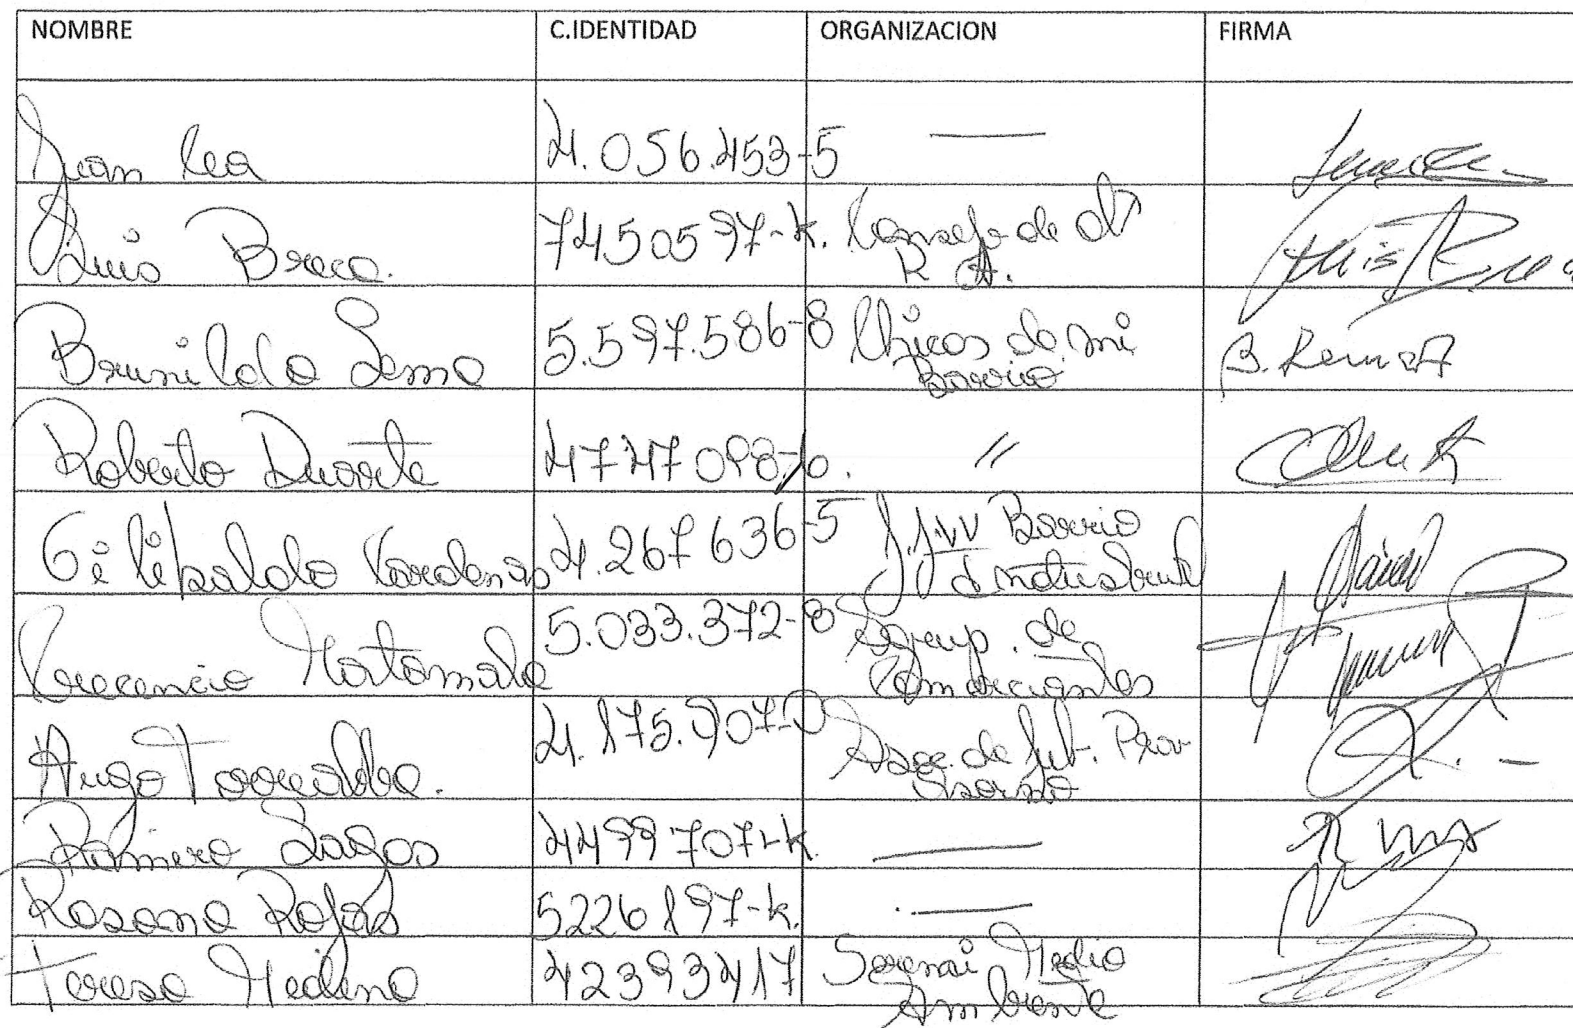 NOMBRE C.IDENTIDAD ORGANIZACION FIRMA
Juan Cea 4.056.453-5 —
Luis Breca. 7450597-k. Consejo de
R A.
Brunilda Lema 5.597.586-8 Chicos de mi
Barrio B. Lema
Roberto Duarte 4747098- "
Gilibaldo Cardenas 4.267636-5 J.J.VV Barrio
Industrial
Crecencio Matamala 5.033.372-8 Agrup. de
Comerciantes
Hugo Torrealba. 4.875.907-0 Asoc. de fut. Prov
Osorno
Ramiro Lagos 4499707-k —
Rosana Rojas 5226897-k. —
Teresa Medina 42393417 Seremi Medio
Ambiente